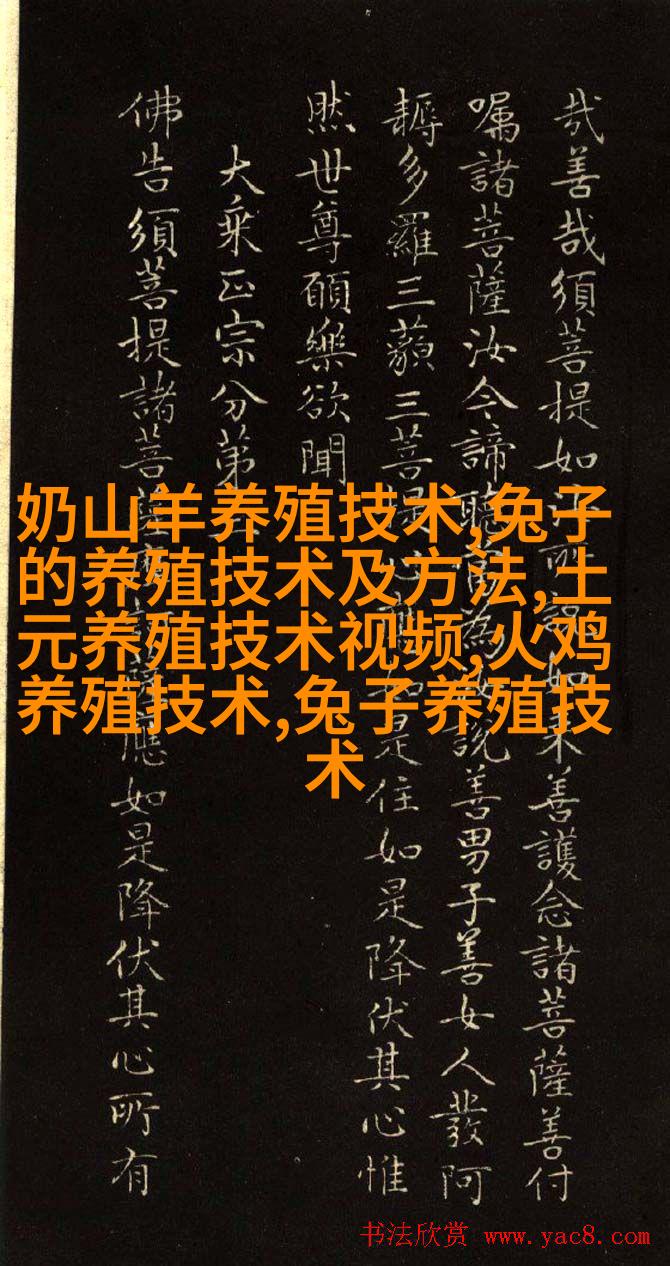 哉善哉須菩提如汝所說如來善護念諸菩薩善付
囑諸菩薩汝今諦聽當為汝說善男子善女人發阿
耨多羅三藐三菩提心應如是住如是降伏其心惟
然世尊願樂欲聞
大乘正宗分第
佛告須菩提諸菩薩摩訶薩應如是降伏其心所有
奶山羊养殖技术,兔子
的养殖技术及方法,土
元养殖技术视频,火鸡
养殖技术,兔子养殖技
术
书法欣赏 www.yac8.com